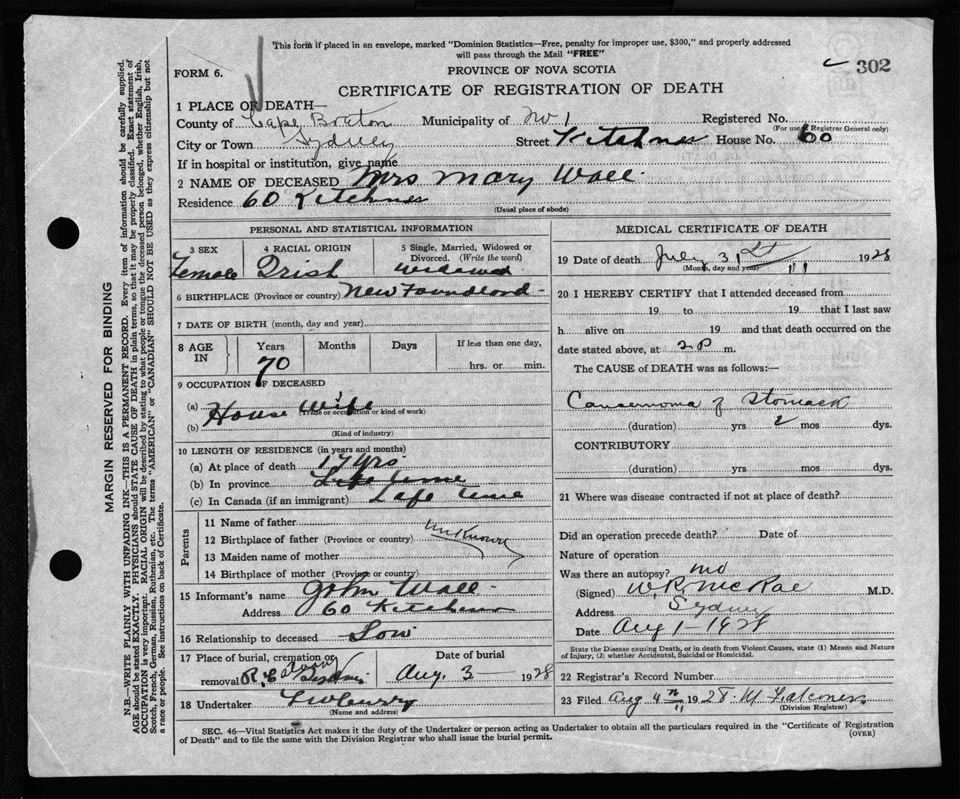 This form if placed in an envelope, marked "Dominion Statistics—Free, penalty for improper use, $300," and properly addressed
will pass through the Mail "FREE"
302
FORM 6.
PROVINCE OF NOVA SCOTIA
CERTIFICATE OF REGISTRATION OF DEATH
1 PLACE OF DEATH—
County of Cape Braton Municipality of No 1 Registered No.
(For use of Registrar General only)
City or Town Sydney Street Kitchner House No. 60
If in hospital or institution, give name
2 NAME OF DECEASED Mrs Mary Wall
Residence 60 Kitchner
(Usual place of abode)
PERSONAL AND STATISTICAL INFORMATION
3 SEX 4 RACIAL ORIGIN 5 Single, Married, Widowed or
Divorced. (Write the word)
Female Irish widowed
6 BIRTHPLACE (Province or country) New Foundland
7 DATE OF BIRTH (month, day and year)
8 AGE IN Years Months Days If less than one day,
70 hrs. or min.
9 OCCUPATION OF DECEASED
(a) House Wife
(Trade or occupation or kind of work)
(b)
(Kind of industry)
10 LENGTH OF RESIDENCE (in years and months)
(a) At place of death 17 yrs
(b) In province Life time
(c) In Canada (if an immigrant) Life time
Parents
11 Name of father
12 Birthplace of father (Province or country) unknown
13 Maiden name of mother
14 Birthplace of mother (Province or country)
15 Informant's name John Wall
Address 60 Kitchner
16 Relationship to deceased Son
17 Place of burial, cremation or removal R.C. Sydney
Date of burial
Aug. 3 1928
18 Undertaker
(Name and address)
MEDICAL CERTIFICATE OF DEATH
19 Date of death July 31st 1928
(Month, day and year)
20 I HEREBY CERTIFY that I attended deceased from
19 to 19 that I last saw
h alive on 19 and that death occurred on
date stated above, at m.
The CAUSE of DEATH was as follows:—
Cancernoma of Stomack
(duration) yrs 2 mos dys.
CONTRIBUTORY
(duration) yrs mos dys.
21 Where was disease contracted if not at place of death?
Did an operation precede death? Date of
Nature of operation
Was there an autopsy? no
(Signed) W. R. McRae M.D.
Address Sydney
Date Aug 1 - 1928
State the Disease causing Death, or in death from Violent Causes, state (1) Means and Nature
of Injury, (2) whether Accidental, Suicidal or Homicidal.
22 Registrar's Record Number
23 Filed Aug 4th 1928. M Falconer
(Division Registrar)
SEC. 46—Vital Statistics Act makes it the duty of the Undertaker or person acting as Undertaker to obtain all the particulars required in the "Certificate of Registration
of Death" and to file the same with the Division Registrar who shall issue the burial permit.
(OVER)
MARGIN RESERVED FOR BINDING
N.B.—WRITE PLAINLY WITH UNFADING INK—THIS IS A PERMANENT RECORD. Every item of information should be carefully supplied.
AGE should be stated EXACTLY. PHYSICIANS should STATE CAUSE OF DEATH in plain terms, so that it may be properly classified. Exact statement of
OCCUPATION is very important. RACIAL ORIGIN will be described by stating to what people or tongue the deceased person belonged, whether English, Irish,
Scotch, French, German, Russian, Ruthenian, etc. The terms "AMERICAN" or "CANADIAN" SHOULD NOT BE USED as they express citizenship but not
a race or people. See instructions on back of Certificate.